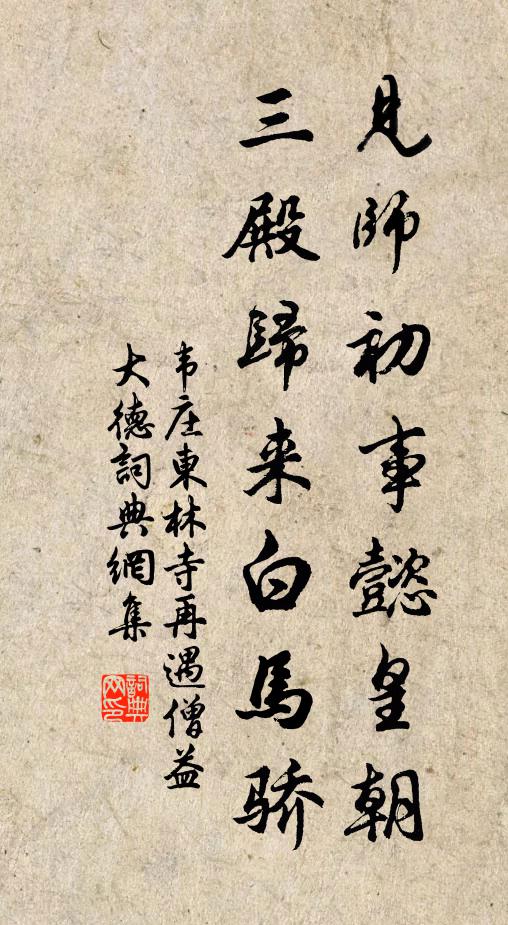 見師初事懿皇朝
三殿歸来白馬骄
韦庄東林寺再遇僧益
大德詞典網集
詞典网印